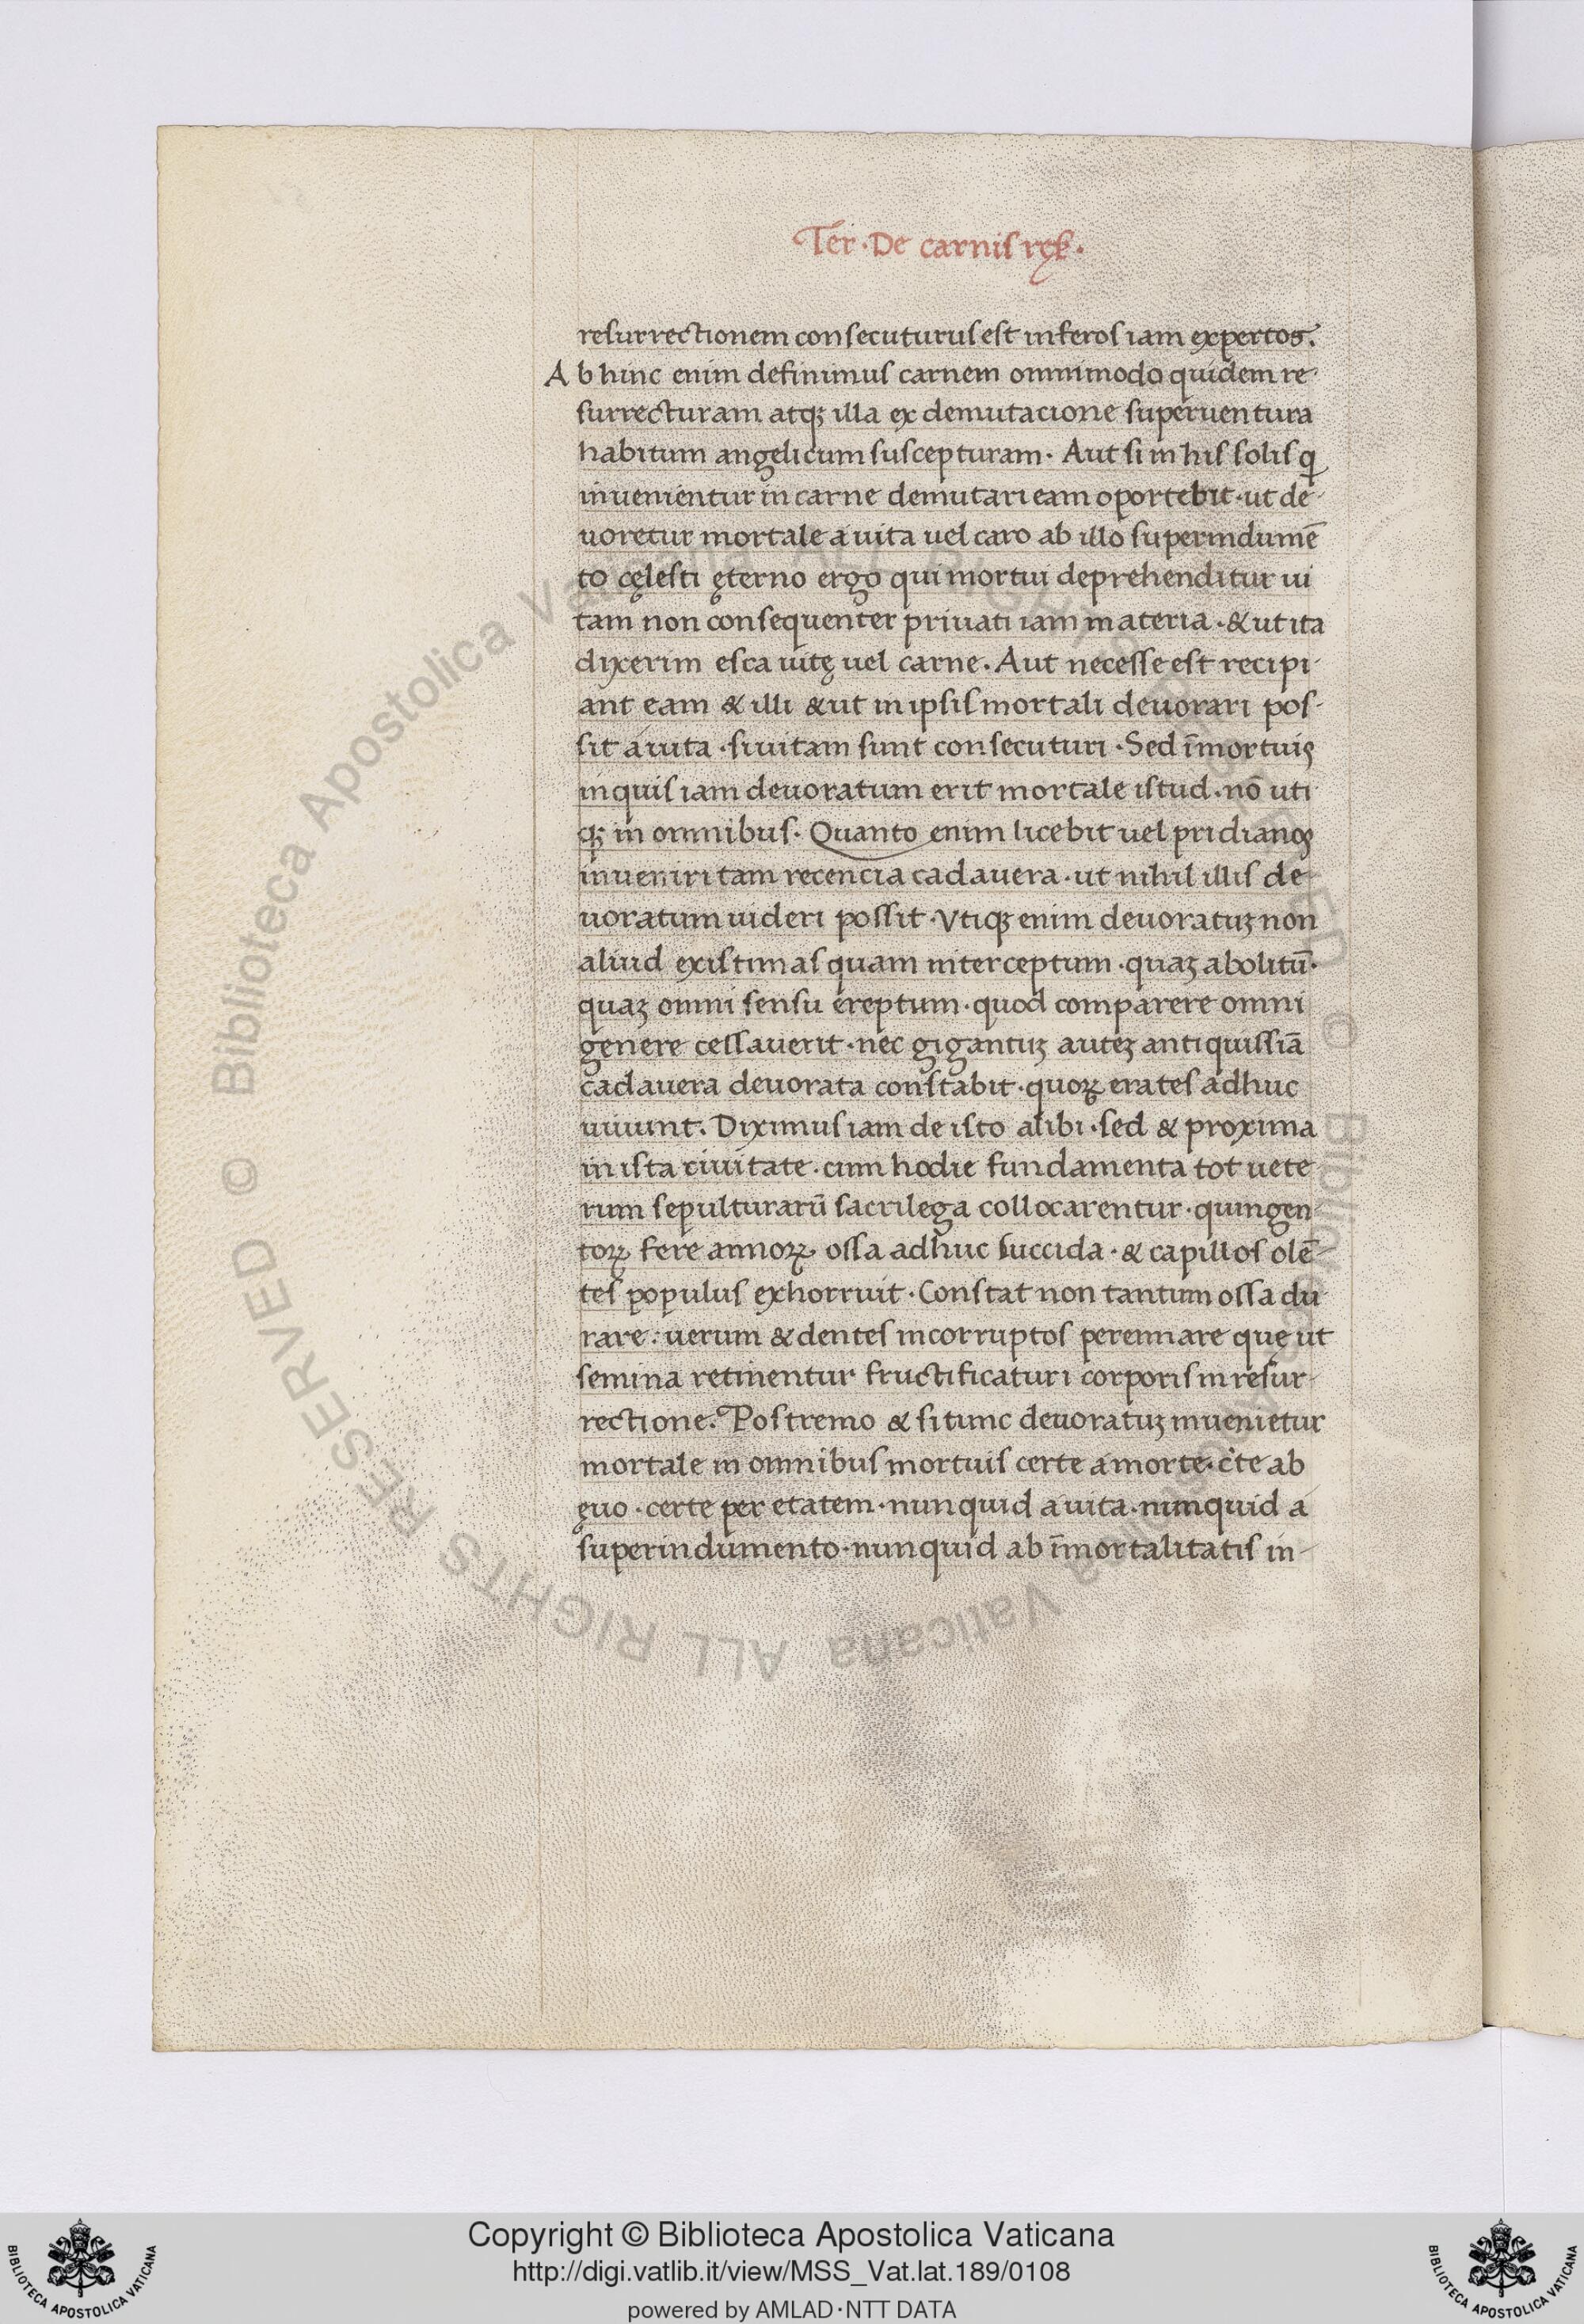 Ter · De carnis rēs ·
resurrectionem consecuturus est inferos iam expertos.
Ab hinc enim definimus carnem omnimodo quidem re-
surrecturam atqꝫ illa ex demutacione superuentura
habitum angelicum suscepturam · Aut si in his solis q
inuenientur in carne demutari eam oportebit · ut de-
uoretur mortale a uita uel caro ab illo superindumē
to cęlesti ęterno ergo qui mortui deprehenditur ui
tam non consequentur priuati iam materia · & ut ita
dixerim esca uitę uel carne . Aut necesse est recipi-
ant eam & illi & ut in ipsis mortali deuorari pos-
sit a uita · si uitam sunt consecuturi · Sed ī mortuis
inquis iam deuoratum erit mortale istud · nō uti
qꝫ in omnibus . Quanto enim licebit uel pridianos
inueniri tam recencia cadauera · ut nihil illis de-
uoratum uideri possit · Vtiqꝫ enim deuoratuꝫ non
aliud existimas quam interceptum · quaꝫ abolitū ·
quaꝫ omni sensu ereptum · quod comparere omni
genere cessauerit · nec gigantuꝫ auteꝫ antiquissīā
cadauera deuorata constabit · quoꝝ crates adhuc
uiuunt . Diximus iam de isto alibi · sed & proxima
in ista ciuitate · cum hodie fundamenta tot uete-
rum sepulturarū sacrilega collocarentur · quingen-
toꝝ fere annoꝝ ossa adhuc succida · & capillos olē-
tes populus exhorruit · Constat non tantum ossa du-
rare : uerum & dentes incorruptos perennare que ut
semina retinentur fructificaturi corporis in resur-
rectione . Postremo & si tunc deuoratuꝫ inuenietur
mortale in omnibus mortuis certe a morte · c̄te ab
ęuo · certe per etatem · nunquid a uita · nunquid a
superindumento · nunquid ab īmortalitatis in-
© Biblioteca Apostolica Vaticana ALL RIGHTS RESERVED © Biblioteca Apostolica Vaticana ALL RIGHTS RESERVED
Copyright © Biblioteca Apostolica Vaticana
http://digi.vatlib.it/view/MSS_Vat.lat.189/0108
powered by AMLAD·NTT DATA
BIBLIOTECA APOSTOLICA VATICANA
BIBLIOTECA APOSTOLICA VATICANA